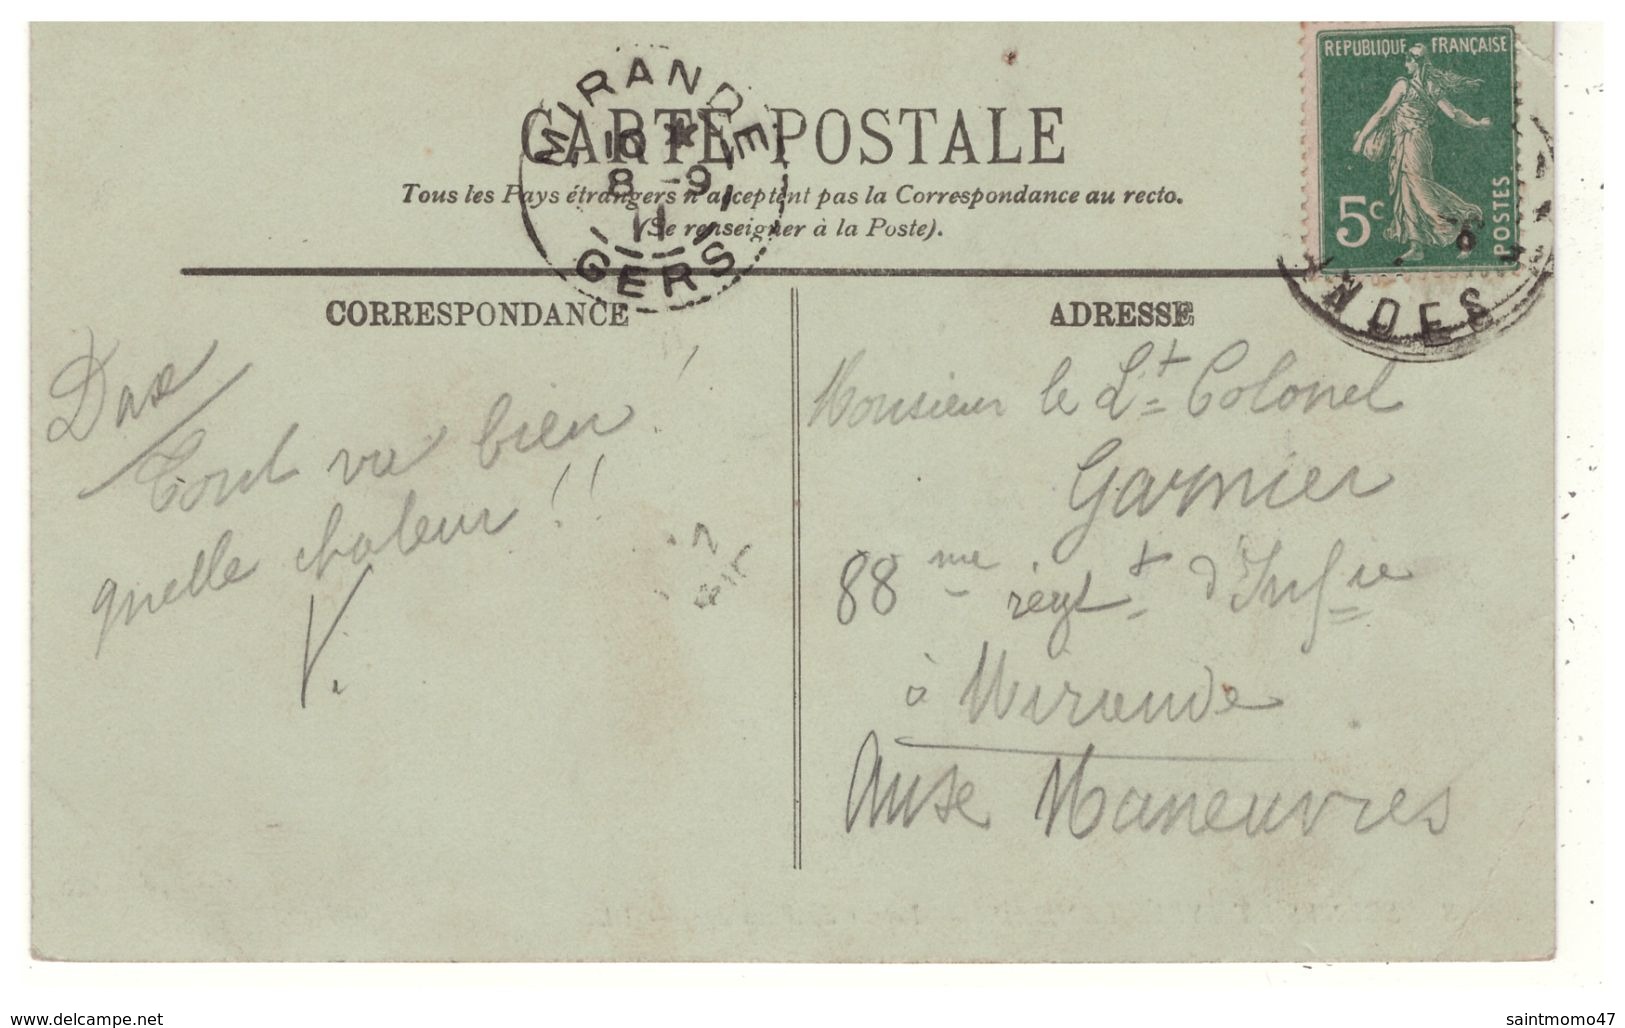 REPUBLIQUE FRANÇAISE
5c
POSTES
MIRANDE
16 *
8 - 9
11
GERS
CARTE POSTALE
Tous les Pays étrangers n'acceptent pas la Correspondance au recto.
(Se renseigner à la Poste).
NDES
CORRESPONDANCE
ADRESSE
Dax
Tout va bien !
quelle chaleur !!
V.
Monsieur le Lt Colonel
Garnier
88me régt d'Infie
à Mirande
Aux Maneuvres
www.delcampe.net
saintmomo47